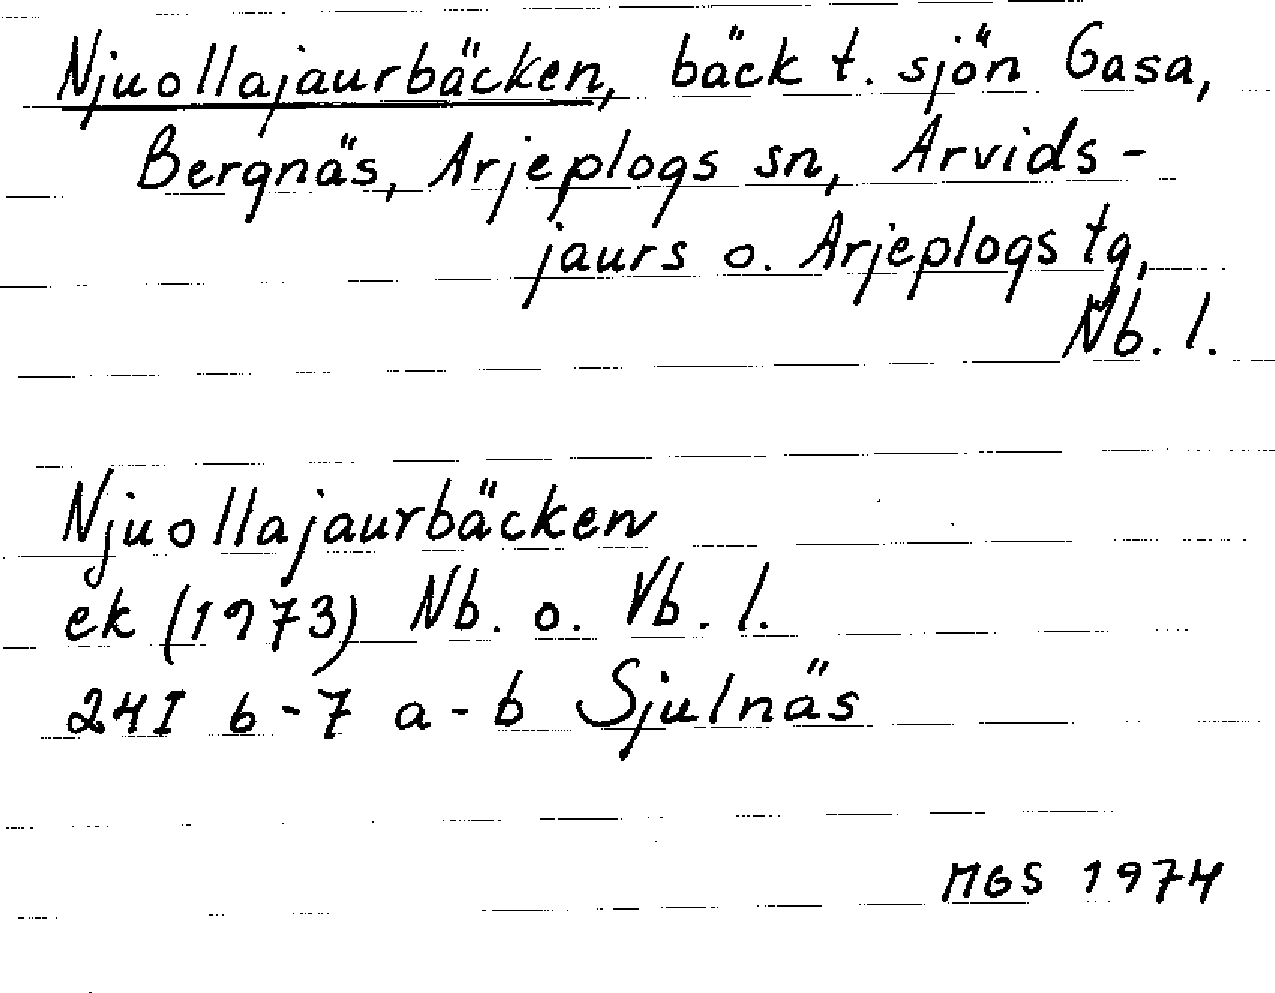 Njuollajaurbäcken, bäck t. sjön Gasa,
Bergnäs, Arjeplogs sn, Arvids-
jaurs o. Arjeplogs tg,
Nb. l.
Njuollajaurbäcken
ek (1973) Nb. o. Vb. l.
24I 6-7 a-b Sjulnäs
MGS 1974